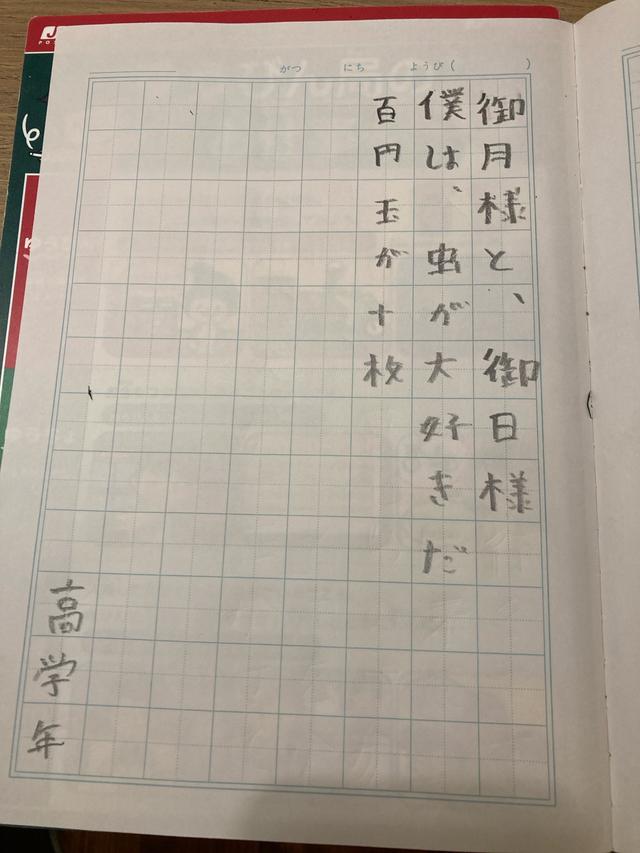 がつ にち ようび( )
御月様と、御日様
僕は、虫が大好きだ
百円玉が十枚
高学年